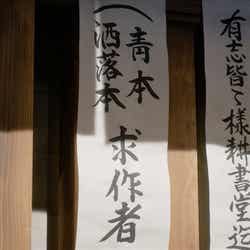 有志皆々様耕書堂迄
青本
洒落本
求作者